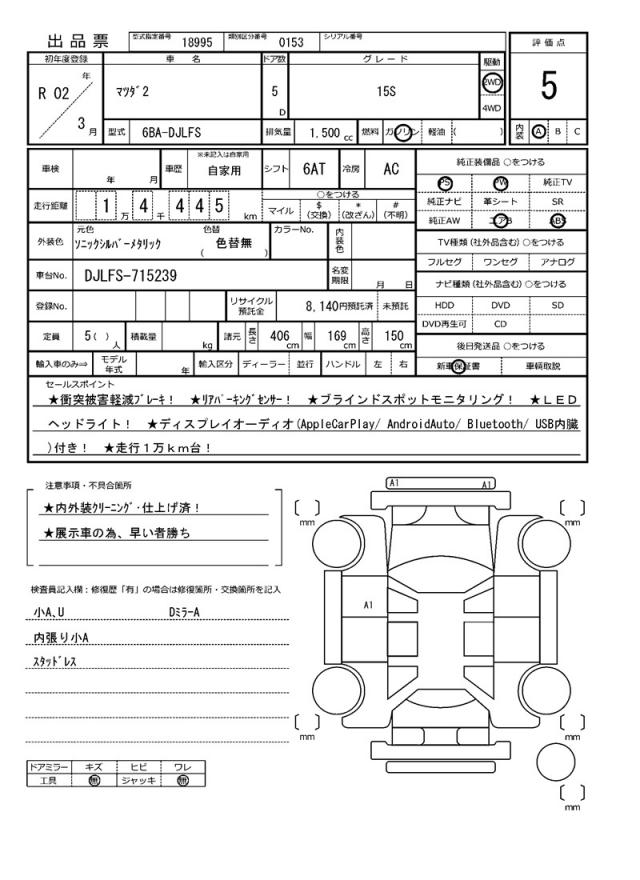 出品票 型式指定番号 18995 類別区分番号 0153 シリアル番号
評価点
5
内装 A B C
初年度登録 車名 ドア数 グレード 駆動
R 02 年 3 月 ﾏﾂﾀﾞ2 5 D 15S 2WD 4WD
型式 6BA-DJLFS 排気量 1.500 cc 燃料 ガソリン 軽油 ( )
車検 年 月 車歴 ※未記入は自家用 自家用 シフト 6AT 冷房 AC
走行距離 1 万 4 千 4 4 5 km ○をつける
マイル $(交換) *(改ざん) #(不明)
外装色 元色 ｿﾆｯｸｼﾙﾊﾞｰﾒﾀﾘｯｸ 色替 色替無 ( ) カラーNo. 内装色
車台No. DJLFS-715239 名変期限 月 日
登録No. リサイクル預託金 8,140円預託済 未預託
定員 5( ) 人 積載量 kg 諸元 長さ 406 cm 幅 169 cm 高さ 150 cm
輸入車のみ⇒ モデル年式 年 輸入区分 ディーラー 並行 ハンドル 左 右
純正装備品 ○をつける
PS PW 純正TV
純正ナビ 革シート SR
純正AW エアB ABS
TV種類(社外品含む)○をつける
フルセグ ワンセグ アナログ
ナビ種類(社外品含む)○をつける
HDD DVD SD
DVD再生可 CD
後日発送品 ○をつける
新車保証書 車輌取説
セールスポイント
★衝突被害軽減ﾌﾞﾚｰｷ！ ★ﾘｱﾊﾟｰｷﾝｸﾞｾﾝｻｰ！ ★ブラインドスポットモニタリング！ ★ＬＥＤ
ヘッドライト！ ★ディスプレイオーディオ(AppleCarPlay/ AndroidAuto/ Bluetooth/ USB内臓
)付き！ ★走行１万ｋｍ台！
注意事項・不具合箇所
★内外装ｸﾘｰﾆﾝｸﾞ・仕上げ済！
★展示車の為、早い者勝ち
検査員記入欄：修復歴「有」の場合は修復箇所・交換箇所を記入
小A､U DﾐﾗｰA
内張り小A
ｽﾀｯﾄﾞﾚｽ
ドアミラー キズ ヒビ ワレ
工具 無 ジャッキ 無
A1 A1
A1
( ) mm
( ) mm
( ) mm
( ) mm
( ) mm